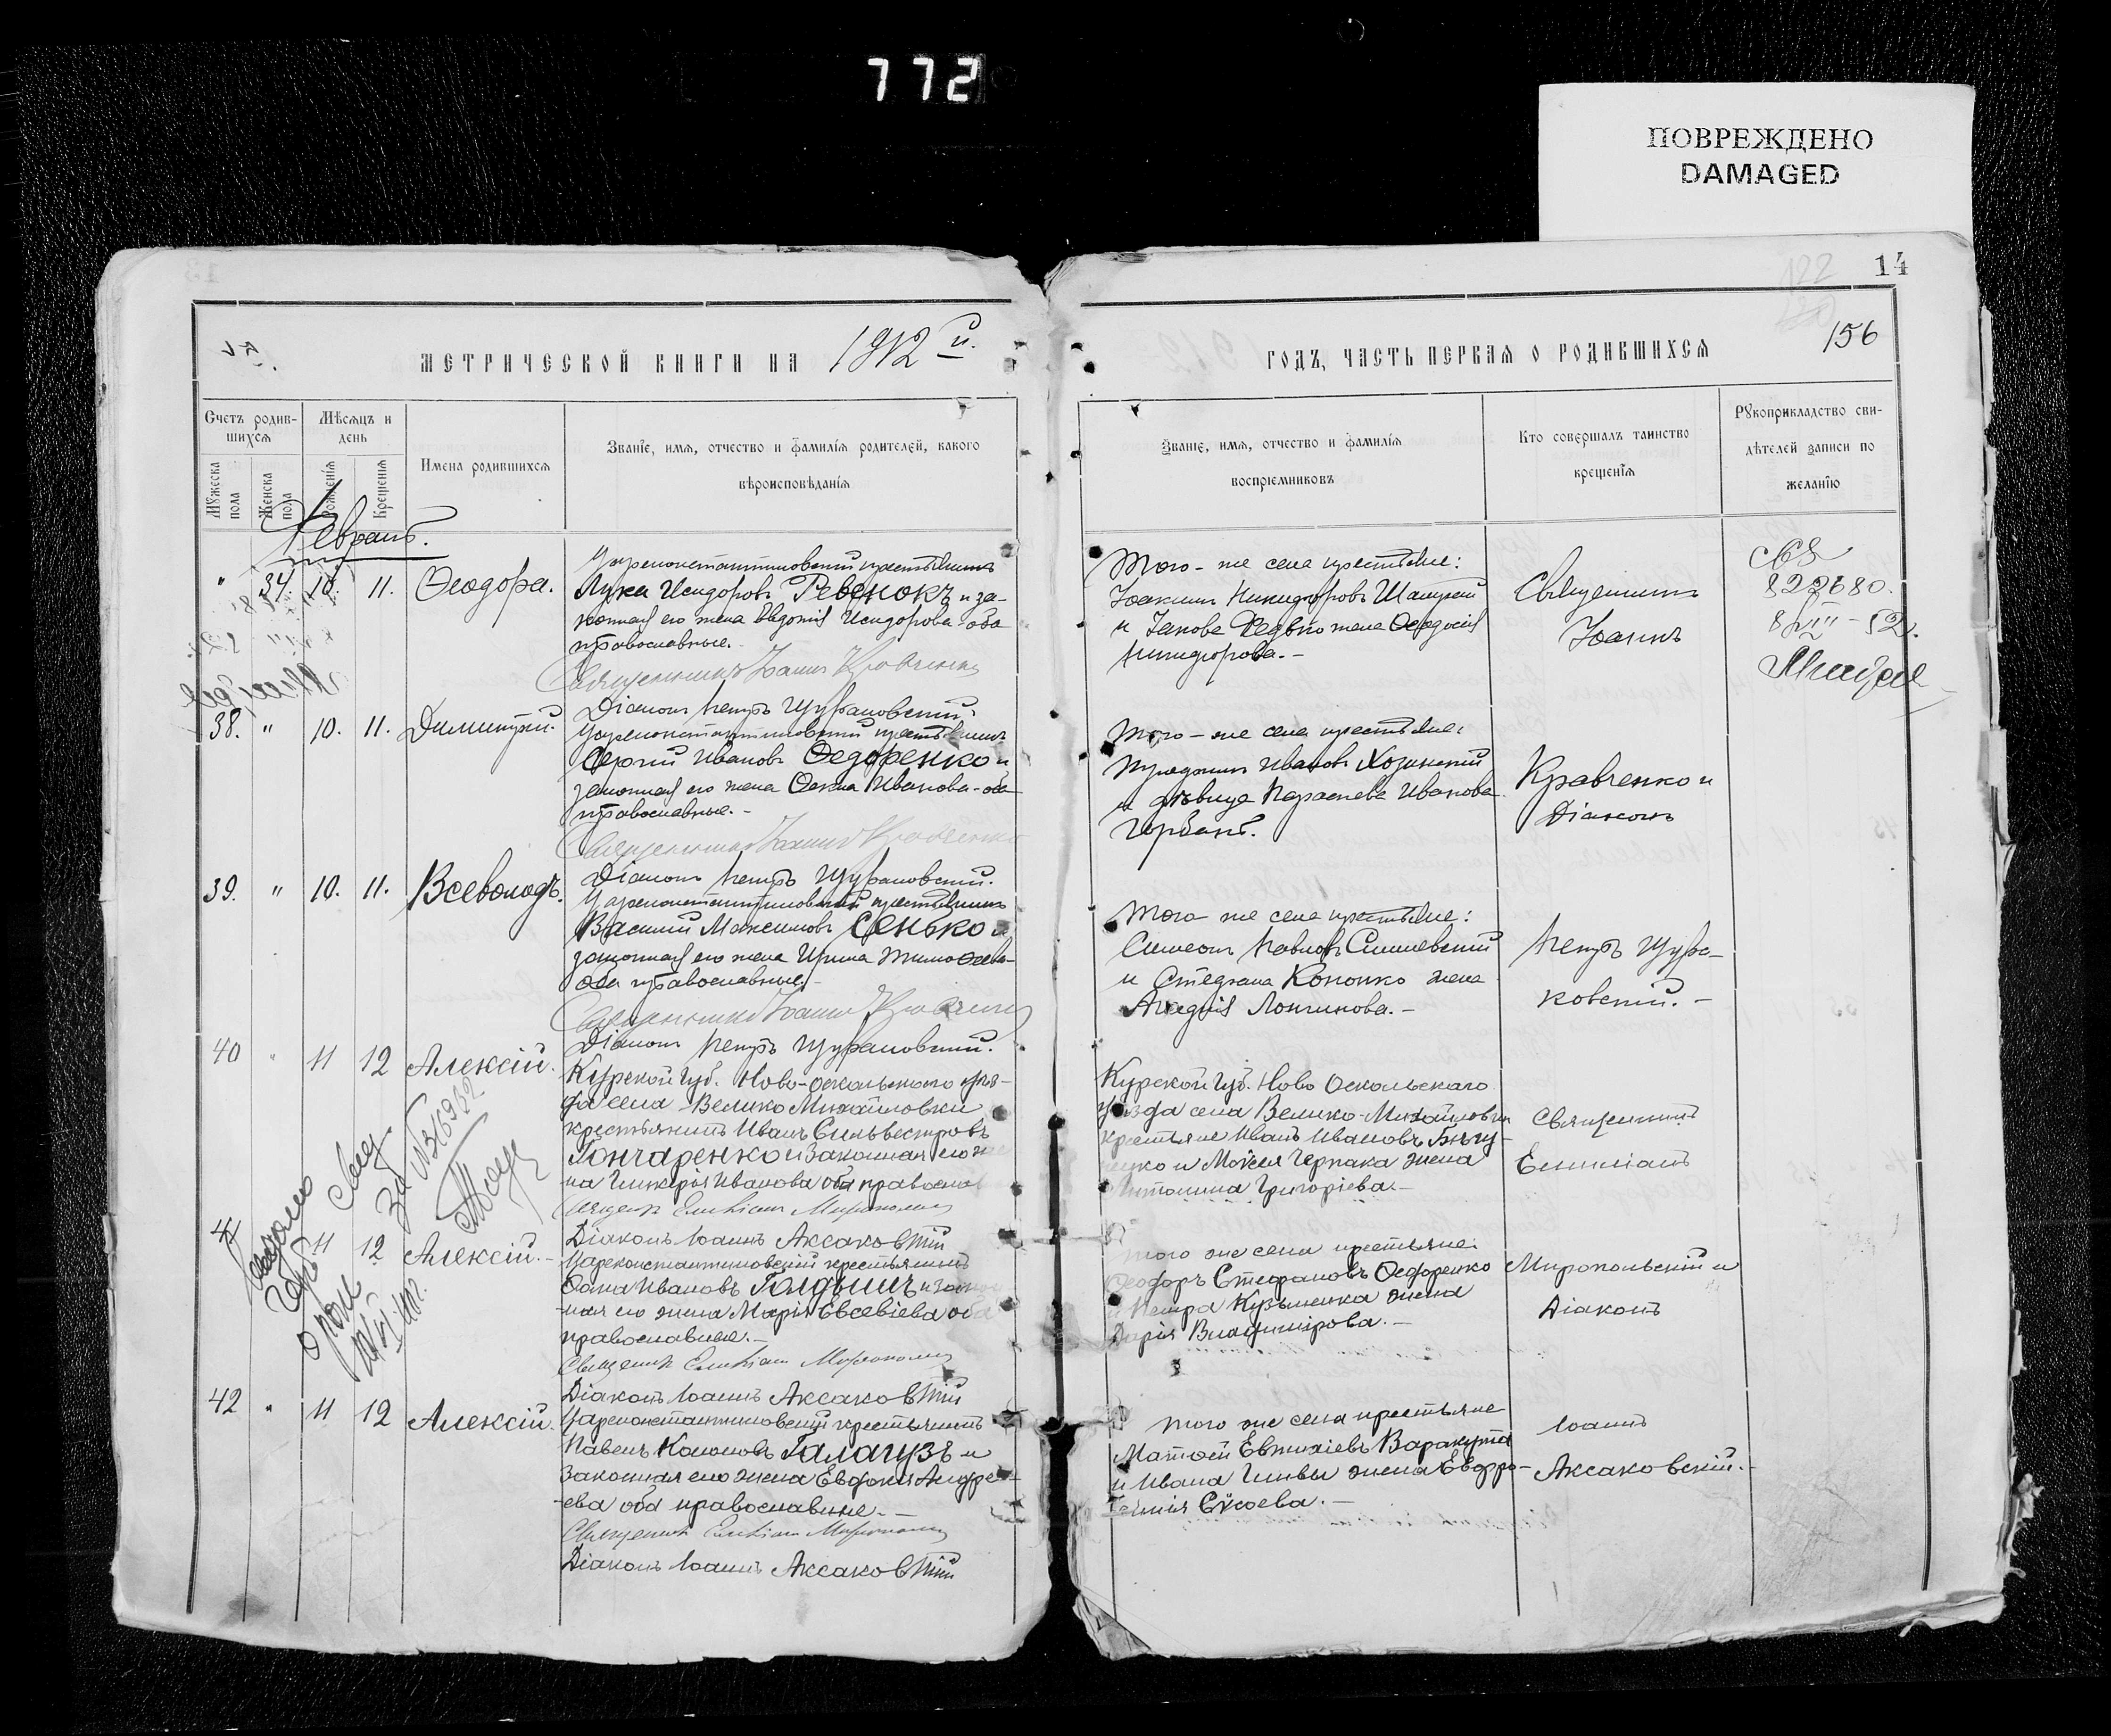 772
ПОВРЕЖДЕНО
DAMAGED
14
122
156
МЕТРИЧЕСКОЙ КНИГИ НА 1912 й.
ГОДЪ, ЧАСТЬ ПЕРВАЯ О РОДИВШИХСЯ
Счетъ родившихся
Мужеска пола
Женска пола
Мѣсяцъ и день
Рожденія
Крещенія
Имена родившихся
Званіе, имя, отчество и фамилія родителей, какого
вѣроисповѣданія
Званіе, имя, отчество и фамилія
воспріемниковъ
Кто совершалъ таинство
крещенія
Рукоприкладство сви-
дѣтелей записи по
желанію
Февраль.
" 34. 10. 11. Ѳеодора.
Цареконстантиновскій крестьянинъ
Лука Исидоровъ Ревенокъ и за-
конная его жена Евдокія Исидорова - оба
православные. -
Священникъ Іоаннъ Кравченко
Діаконъ Петръ Щураковскій.
Того - же села крестьяне:
Іоакимъ Никифоровъ
и Іакова Редько жена Ѳеодосія
Никифорова. -
Священникъ
Іоаннъ
822680.
8/VIII - 52.
38. " 10. 11. Димитрій.
Цареконстантиновскій крестьянинъ
Сергій Ивановъ Ѳедоренко и
законная его жена Ѳекла Иванова - оба
православные. -
Священникъ Іоаннъ Кравченко
Діаконъ Петръ Щураковскій.
Того - же села крестьяне:
Ивановъ
и дѣвица Параскева Иванова
Горбань.
Кравченко и
Діаконъ
39. " 10. 11. Всеволодъ.
Цареконстантиновскій крестьянинъ
Василій Максимовъ Сенько и
законная его жена Ирина Тимоѳеева -
оба православные. -
Священникъ Іоаннъ Кравченко
Діаконъ Петръ Щураковскій.
Того - же села крестьяне:
Симеонъ Павловъ
и Стефана Кононко жена
Агафія Логинова. -
Петръ Щура-
ковскій. -
40 " 11 12 Алексій.
Курской губ. Ново-Оскольскаго уѣз-
да села Велико Михайловки
крестьянинъ Иванъ Сильвестровъ
Гончаренко и законная его же
на Гликерія Иванова оба православ
Священ. Емиліанъ Миропольскій
Діаконъ Іоаннъ Аксаковскій
Курской губ. Ново Оскольскаго
уѣзда села Велико-Михайловки
крестьяне Иванъ Ивановъ
и Моѵсея Черпака жена
Антонина Григоріева. -
Священникъ
Емиліанъ
41 11 12 Алексій. -
Цареконстантиновскій крестьянинъ
Ѳома Ивановъ Голдышъ и закон
-ная его жена Марія Евсевіева оба
православные. -
Священникъ Емиліанъ Миропольскій
Діаконъ Іоаннъ Аксаковскій
Того же села крестьяне:
Ѳеодоръ Стефановъ Ѳедоренко
и Петра Кузьменка жена
Дарія Владимірова. -
Миропольскій и
Діаконъ
42 " 11 12 Алексій.
Цареконстантиновскій крестьянинъ
Павелъ Кононовъ Галагузъ и
законная его жена Евфимія Андре-
-ева оба православные. -
Священникъ Емиліанъ Миропольскій
Діаконъ Іоаннъ Аксаковскій
Того же села крестьяне
Матѳей Евтихіевъ Варакута
и Ивана Гливы жена Евфро-
синія Сѵсоева. -
Іоаннъ
Аксаковскій. -